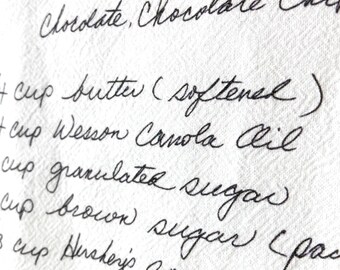 Chocolate, Chocolate Chip
4 cup butter (softened)
4 cup Wesson Canola Oil
cup granulated sugar
cup brown sugar (pac
3 cup Hershey's